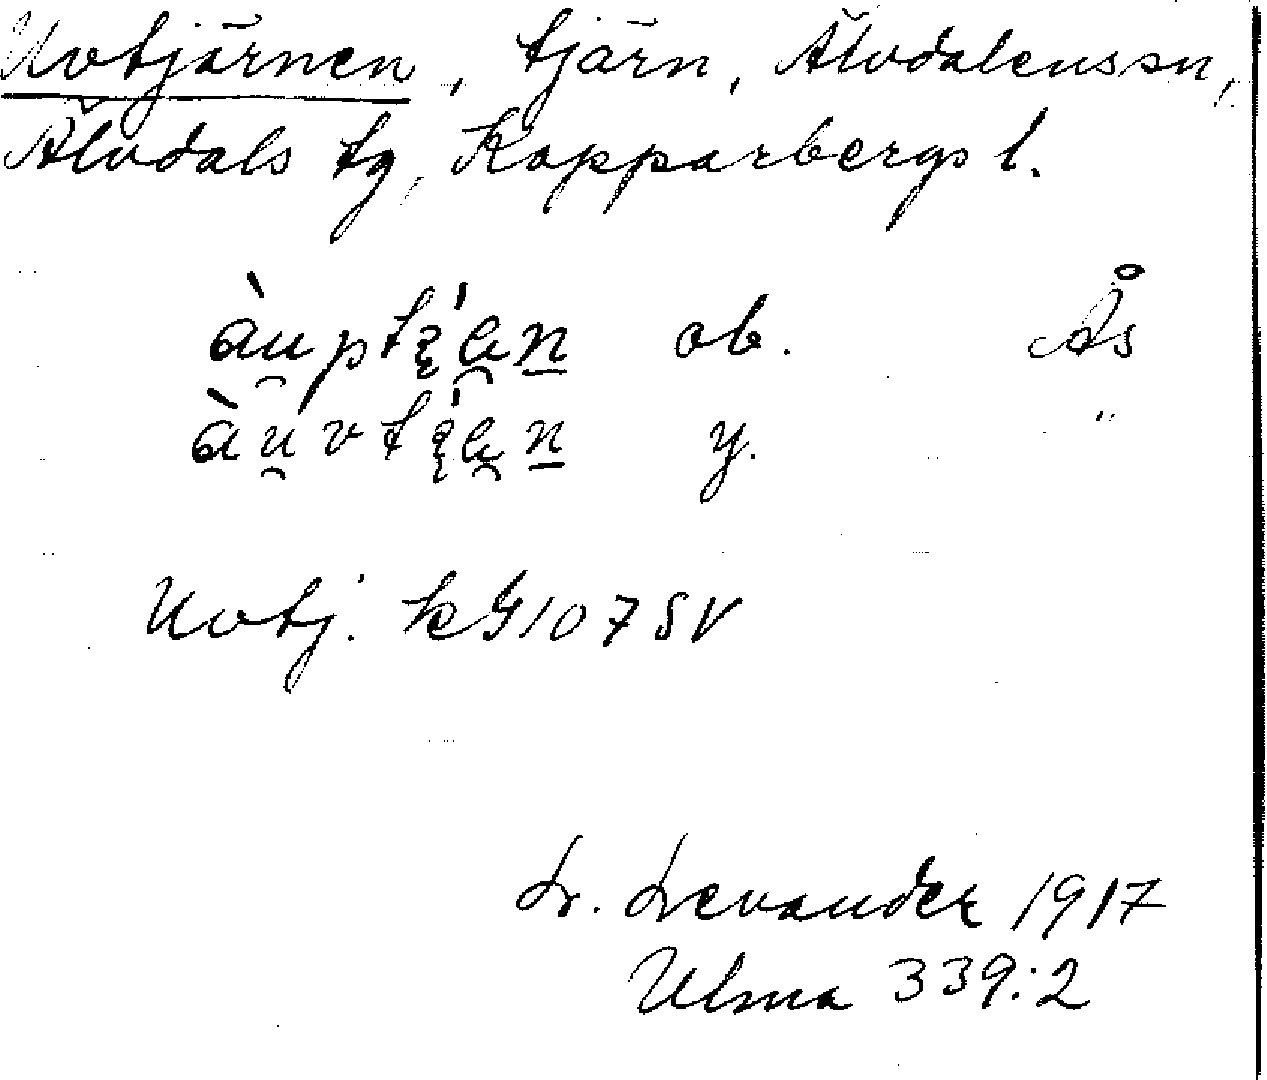 Uvtjärnen, tjärn, Älvdalenssn,
Älvdals tg, Kopparbergs l.
ob. Ås
y. "
Uvtj. kG107SV
L. Levander 1917
Ulma 339:2